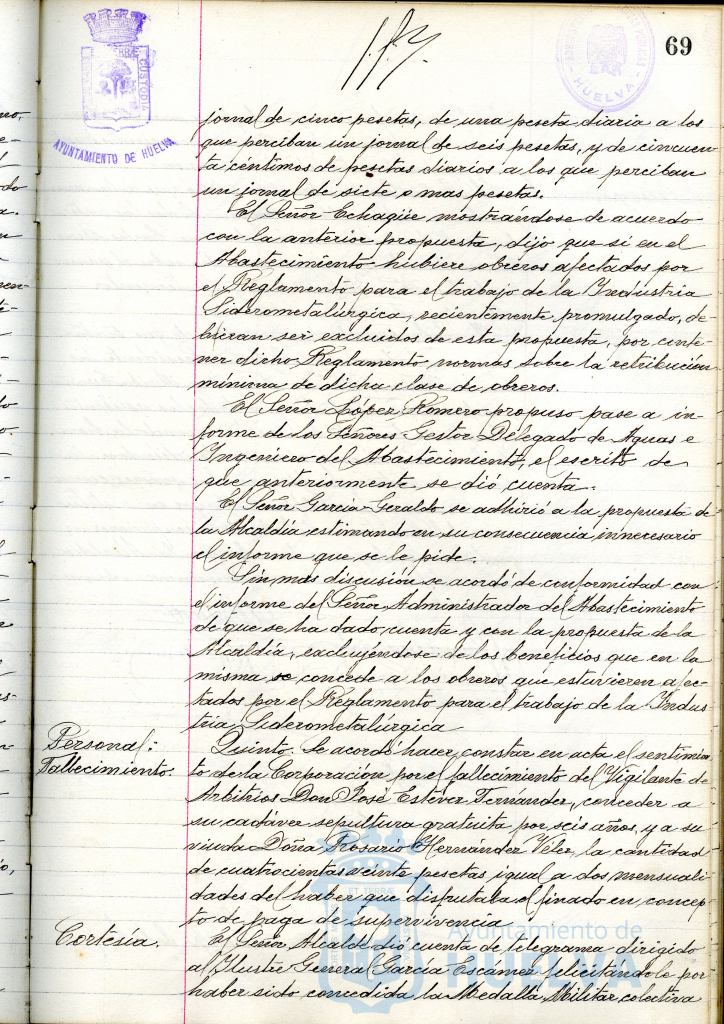 69
AYUNTAMIENTO DE HUELVA
HUELVA
jornal de cinco pesetas, de una peseta diaria a los
que perciban un jornal de seis pesetas, y de cincuen
ta céntimos de pesetas diarios a los que perciban
un jornal de siete o mas pesetas.
El Señor Echagüe mostrándose de acuerdo
con la anterior propuesta, dijo que si en el
Abastecimiento hubiere obreros afectados por
el Reglamento para el trabajo de la Industria
Siderometalúrgica, recientemente promulgado, de-
bieran ser excluidos de esta propuesta, por conte-
ner dicho Reglamento normas sobre la retribución
mínima de dicha clase de obreros.
El Señor López Romero propuso pase a in-
forme de los Señores Gestor Delegado de Aguas e
Ingeniero del Abastecimiento, el escrito de
que anteriormente se dió cuenta.
El Señor García Geraldo se adhirió a la propuesta de
la Alcaldía estimando en su consecuencia innecesario
el informe que se le pide.
Sin mas discusión se acordó de conformidad con
el informe del Señor Administrador del Abastecimiento
de que se ha dado cuenta y con la propuesta de la
Alcaldía, excluyéndose de los beneficios que en la
misma se concede a los obreros que estuvieren afec-
tados por el Reglamento para el trabajo de la Indus
tria Siderometalúrgica
Personal:
Fallecimiento.
Quinto. Se acordó hacer constar en acta el sentimien
to de la Corporación por el fallecimiento del Vigilante de
Arbitrios Don José Estévez Fernández, conceder a
su cadáver sepultura gratuita por seis años, y a su
viuda Doña Rosario Hernández Vélez, la cantidad
de cuatrocientas veinte pesetas igual a dos mensuali
dades del haber que disfrutaba el finado en concep
to de paga de supervivencia
Cortesía.
El Señor Alcalde dió cuenta de telegrama dirigido
al Iluster General García Escámez felicitándole por
haber sido concedida la Medalla Militar colectiva
Ayuntamiento de
HUELVA